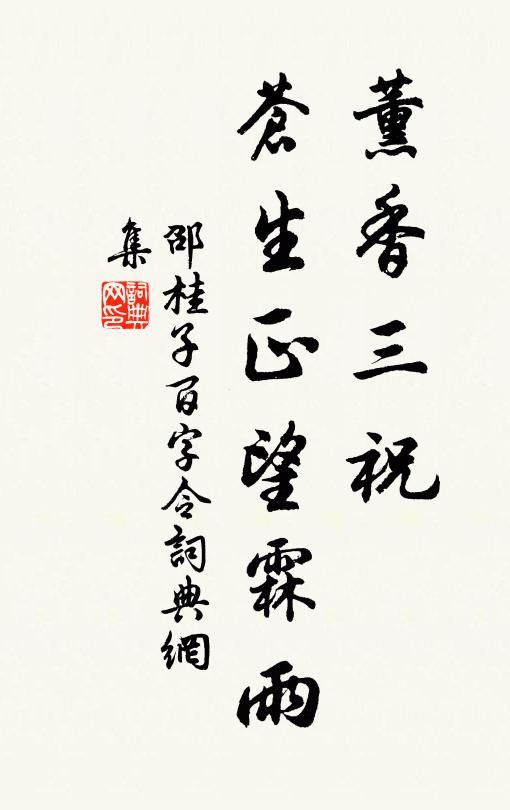 薰香三祝
蒼生正望霖雨
邵桂子百字令詞典網
集
詞典
网印